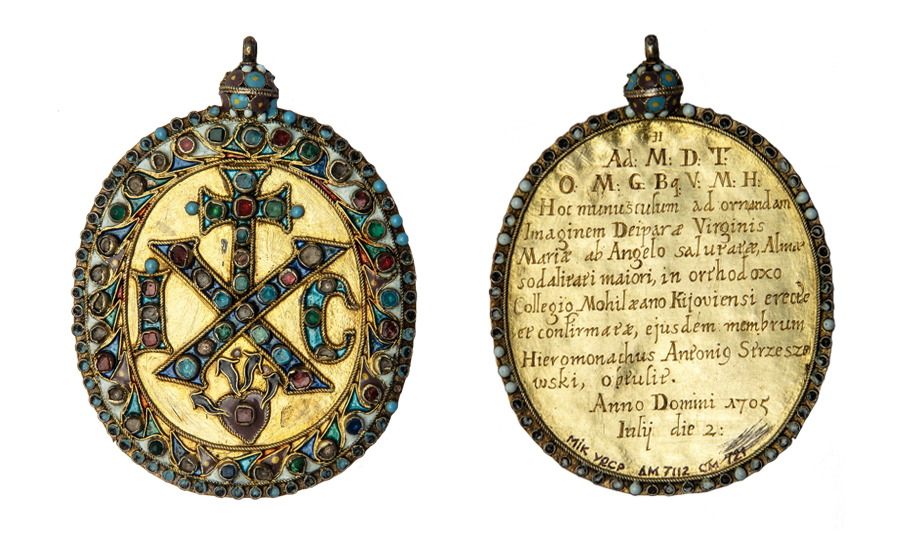 I X C
Ad: M: D: T:
O: M: G: Bq: V: M: H:
Hoc munusculum ad ornandam
Imaginem Deiparæ Virginis
Mariæ ab Angelo salutatæ, Almæ
sodalitati maiori, in orthodoxo
Collegio Mohilæano Kijoviensi erectæ
et confirmatæ, ejusdem membrum
Hieromonachus Antonig Strzeszo
wski, obtulit.
Anno Domini 1705
Iulij die 2:
МІК УРСР ДМ 7112 СМ